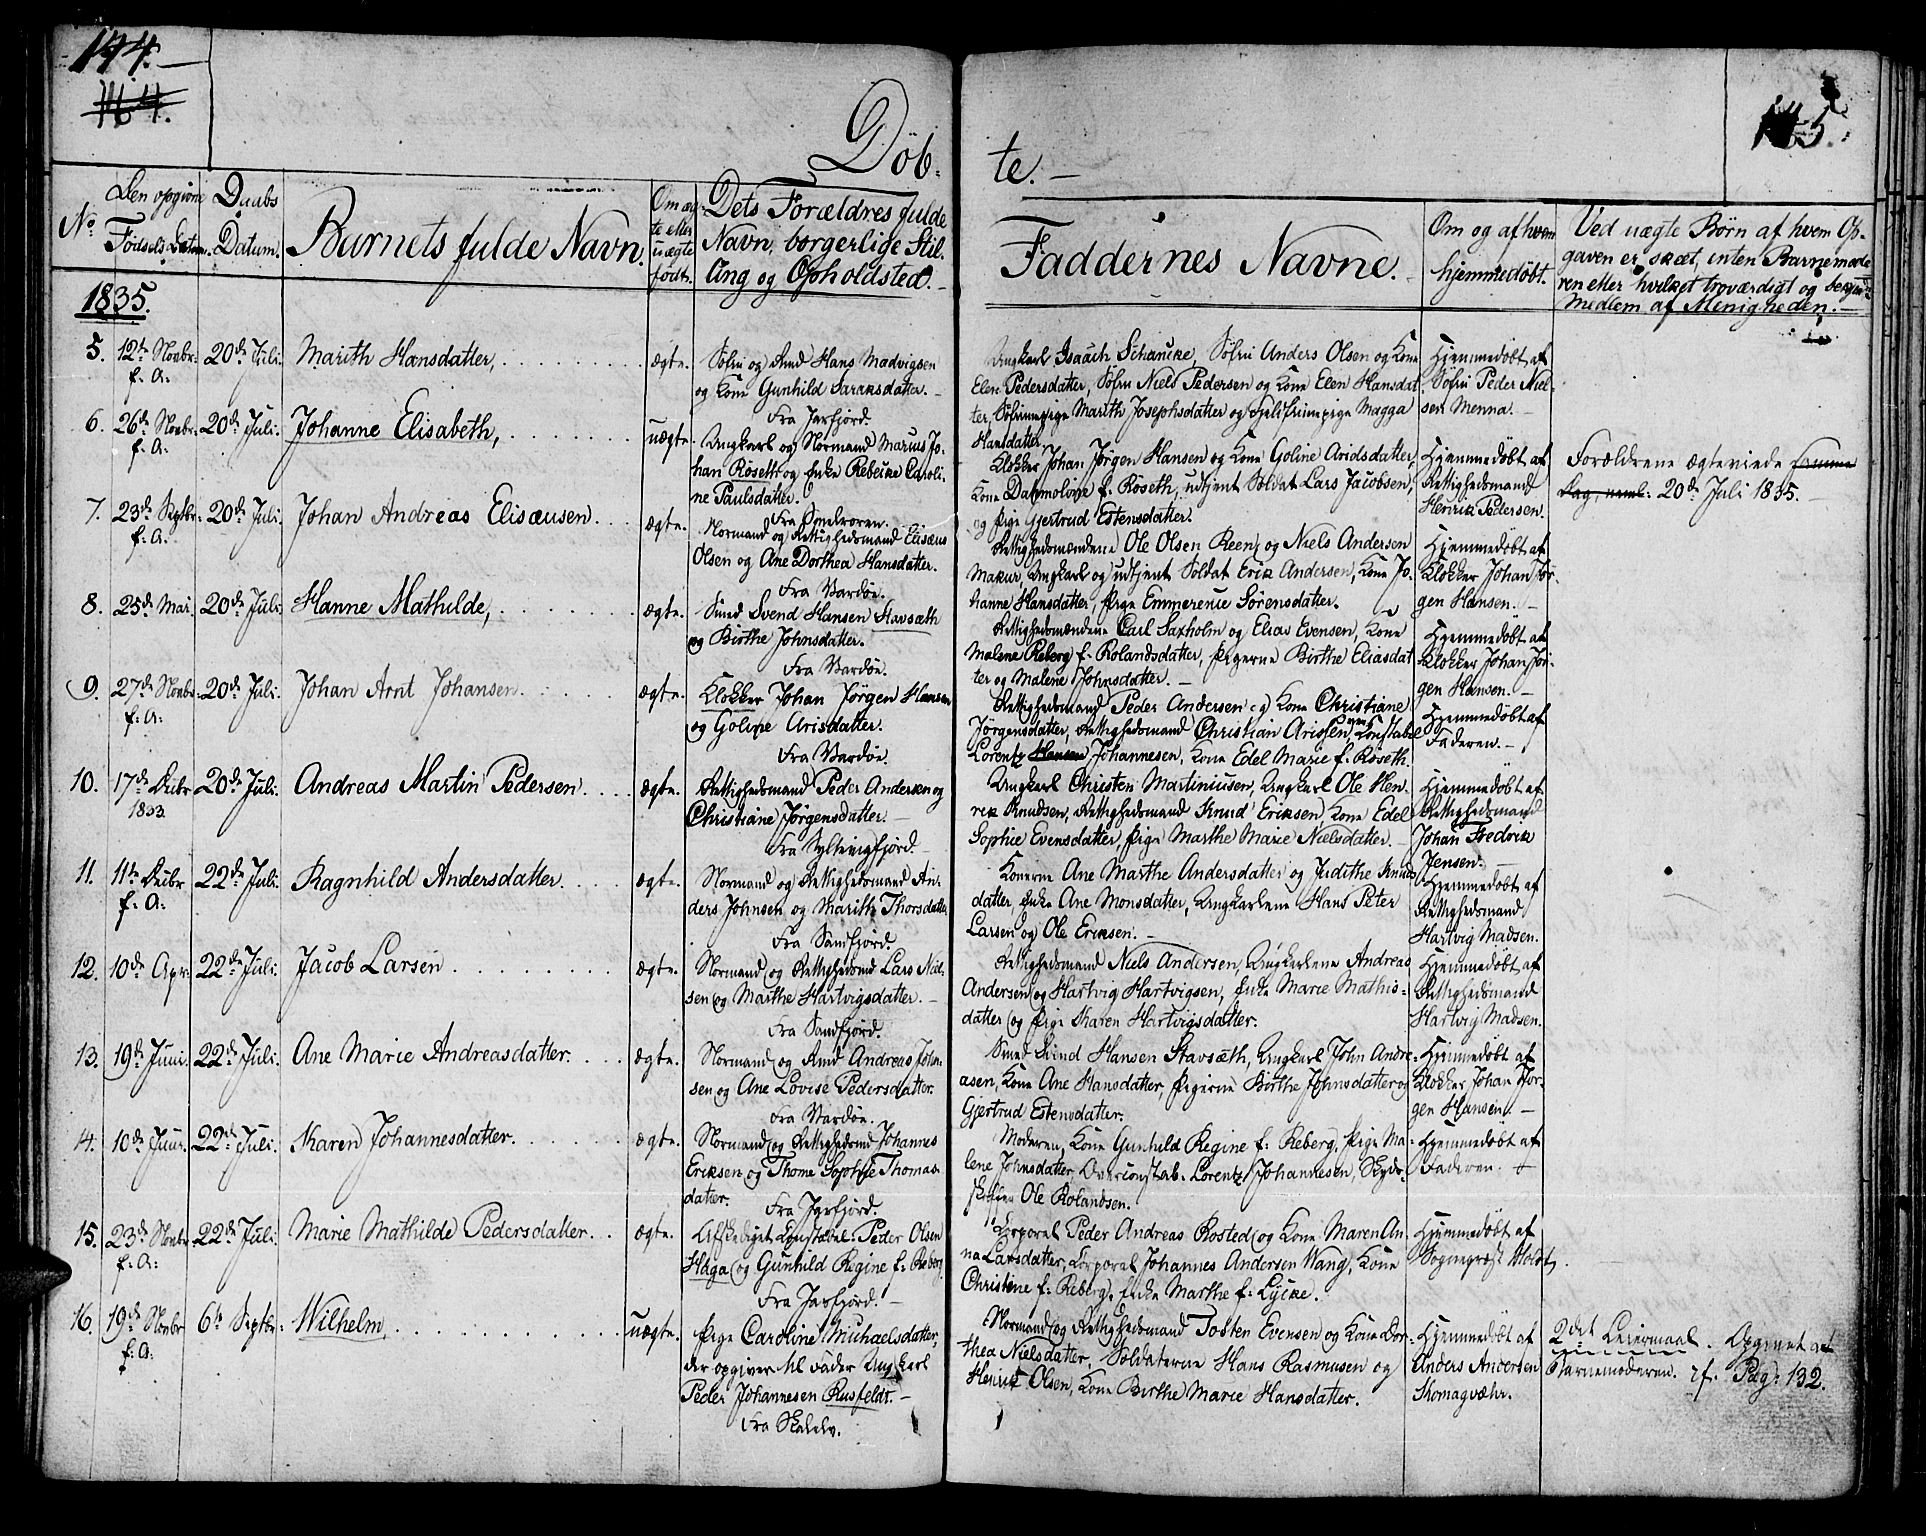 144.
164.
Döb-
te.
145.
No
Den opgivne Födsels Datum.
Daabs Datum.
Barnets fulde Navn.
Om ægte eller uægte födt.
Dets Forældres fulde Navn, borgerlige Stilling og Opholdsted.
Faddernes Navne.
Om og af hvem hjemmedöbt.
Ved uægte Börn af hvem Opgaven er skæt, inten Barnemoderen eller hvilket troværdigt og Medlem af Menigheden.
1835.
5. 12te Novbr. f. A: 20de Juli. Marith Hansdatter, ægte.
Söfin og Hans Madvigsen
og Kone Gunhild Saraksdatter.
Fra Jarfjord.
Ungkarl Isaach Schancke, Söfin Anders Olsen og Kone
Elen Pedersdatter, Söfin Niels Pedersen og Kone Elen Hansdat
ter, Söfinnepige Marith Josephsdatter og Magga
Hansdatter.
Hjemmedöbt af
Söfin Peder Niel
sen Menna.
6. 26de Novbr. f. A: 20de Juli. Johanne Elisabeth, uægte.
Ungkarl og Normand Marius Jo-
han Röseth og Enke Rebecke Caroli-
ne Paulsdatter.
Fra Smelroren.
Klokker Johan Jörgen Hansen og Kone Goline Arisdatter,
Kone f. Röseth, udtjent Soldat Lars Jacobsen,
og Pige Gjertrud Estensdatter.
Hjemmedöbt af
Rettighedsmand
Henrik Pedersen.
Forældrene ægteviede samme
Dag, neml: 20de Juli 1835.
7. 23de Septbr. f. A. 20de Juli. Johan Andreas Elisæusen. ægte.
Normand og Rettighedsmand Elisæus
Olsen og Ane Dorthea Hansdatter.
Fra Vardöe.
Rettighedsmændene Ole Olsen Reen og Niels Andersen
Makur, Ungkarl og udtjent Soldat Erik Andersen, Kone Jo-
hanne Hansdatter, Pige Emmerence Sörensdatter.
Hjemmedöbt af
Klokker Johan Jör-
gen Hansen.
8. 25de Mai. 20de Juli. Hanne Mathilde, ægte.
Smed Svend Hansen Stavsæth
og Birthe Johnsdatter.
Fra Vardöe.
Rettighedsmændene Carl Saxholm og Elias Evensen, Kone
Malene Reberg f. Rolandsdatter, Pigerne Birthe Eliasdat
ter og Malene Johnsdatter.
Hjemmedöbt af
Klokker Johan Jör-
gen Hansen.
9. 27de Novbr. f: A: 20de Juli. Johan Arnt Johansen. ægte.
Klokker Johan Jörgen Hansen
og Goline Arisdatter.
Fra Vardöe.
Rettighedsmand Peder Andersen og Kone Christiane
Jörgensdatter, Rettighedsmand Christian Arissen, Konstabel
Lorentz Hansen Johannesen, Kone Edel Marie f. Röseth.
Hjemmedöbt af
Faderen.
10. 17de Decbr 1833. 20de Juli. Andreas Martin Pedersen. ægte.
Rettighedsmand Peder Andersen og
Christiane Jörgensdatter.
Fra Syltevigfjord.
Ungkarl Christen Martiniusen, Ungkarl Ole Hen-
rik Knudsen, Rettighedsmand Knud Eriksen, Kone Edel
Sophie Evensdatter, Pige Marthe Marie Nielsdatter.
Hjemmedöbt af
Rettighedsmand
Johan Fredrik
Jensen.
11. 11te Decbr f. A: 22de Juli. Ragnhild Andersdatter. ægte.
Normand og Rettighedsmand An-
ders Johnsen og Marith Thorsdatter
Fra Sandfjord.
Konerne Ane Marthe Andersdatter og Judithe Knuds
datter, Enke Ane Monsdatter, Ungkarlene Hans Peter
Larsen og Ole Eriksen.
Hjemmedöbt af
Rettighedsmand
Hartvig Madsen.
12. 10de Apr. 22de Juli. Jacob Larsen. ægte.
Normand og Rettighedsmd Lars Niel-
sen og Marthe Hartvigsdatter.
Fra Sandfjord.
Rettighedsmand Niels Andersen, Ungkarlene Andreas
Andersen og Hartvig Hartvigsen, Enke Marie Mathis-
datter og Pige Karen Hartvigsdatter.
Hjemmedöbt af
Rettighedsmand
Hartvig Madsen.
13. 19de Juni. 22de Juli. Ane Marie Andreasdatter. ægte.
Normand og Andreas Johan-
sen og Ane Lovise Pedersdatter.
Fra Vardöe.
Smed Svend Hansen Stavsæth, Ungkarl John Andre-
asen, Kone Ane Hansdatter, Pigerne Birthe Johnsdatter og
Gjertrud Estensdatter.
Hjemmedöbt af
Klokker Johan Jör-
gen Hansen.
14. 10de Juni. 22de Juli. Karen Johannesdatter. ægte.
Normand og Rettighedsmd Johannes
Eriksen og Thome Sophie Thomas-
datter.
Fra Jarfjord.
Moderen, Kone Gunhild Regine f. Reberg, Pige Ma-
lene Johnsdatter, Overconstab. Lorentz Johannesen, Skyds-
skaffer Ole Rolandsen.
Hjemmedöbt af
Faderen.
15. 23de Novbr. f. A: 22de Juli. Marie Mathilde Pedersdatter. ægte.
Afskediget Constabel Peder Olsen
Haga og Gunhild Regine f. Reberg.
Fra Jarfjord.
Corporal Peder Andreas Rosted og Kone Maren An-
na Larsdatter, Corporal Johannes Andersen Wang, Kone
Christine f. Reberg, Enke Marthe f. Lycke.
Hjemmedöbt af
Sognepræst Holdt.
16. 19de Novbr f. A: 6te Septbr. Wilhelm, uægte.
Pige Caroline Michaelsdatter,
der opgiver til Fader Ungkarl
Peder Johannesen Rusfeldt.
Fra Skalelv.
Normand og Rettighedsmand Tosten Evensen og Kone Dor-
thea Nielsdatter, Soldaterne Hans Rasmusen og
Henrik Olsen, Kone Birthe Marie Hansdatter.
Hjemmedöbt af
Anders Andersen
Skomagvæhr.
2det Leiermaal. Opgivet af
Barnemoderen. cf. Pag. 132.